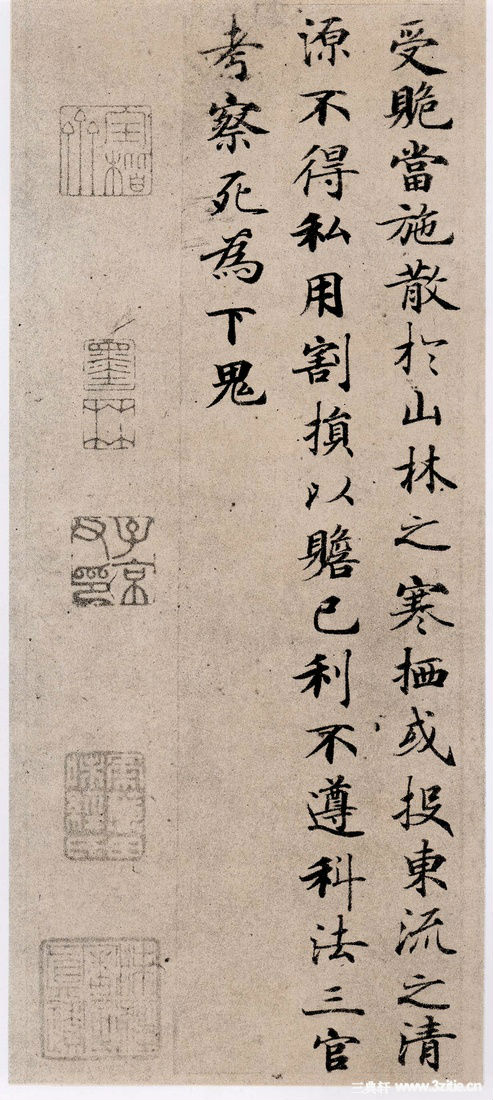 受䞈當施散於山林之寒栖或投東流之清
源不得私用割損以贍己利不遵科法三官
考察死為下鬼
墨林
子京父印
三典轩 www.3zitie.cn